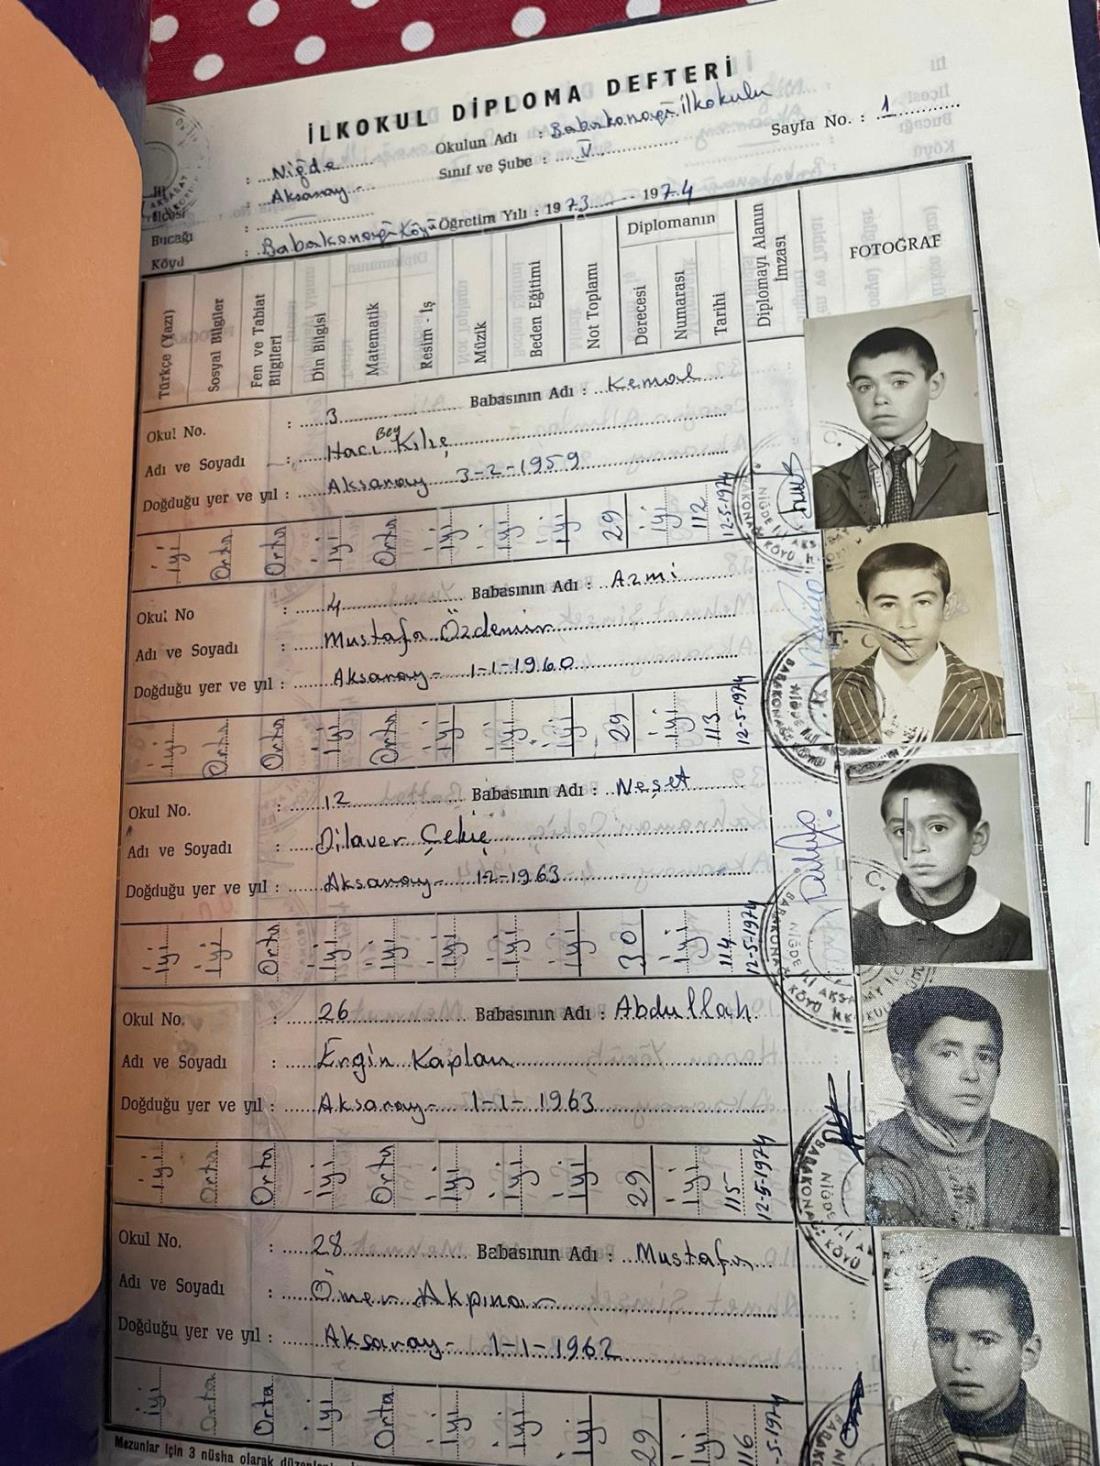 İLKOKUL DİPLOMA DEFTERİ
İli : Niğde Okulun Adı : Babakonağı İlkokulu Sayfa No. : 1
İlçesi : Aksaray Sınıf ve Şube : V.
Bucağı :
Köyü : Babakonağı Köyü Öğretim Yılı : 1973 - 1974
Türkçe (Yazı) Sosyal Bilgiler Fen ve Tabiat Bilgileri Din Bilgisi Matematik Resim - İş Müzik Beden Eğitimi Not Toplamı Diplomanın Derecesi Numarası Tarihi Diplomayı Alanın İmzası FOTOĞRAF
Okul No. : 3 Babasının Adı : Kemal
Bey
Adı ve Soyadı : Hacı Kılıç
Doğduğu yer ve yıl : Aksaray 3-2-1959
iyi Orta Orta iyi Orta iyi iyi iyi 29 iyi 112 12-5-1974
Okul No : 4 Babasının Adı : Azmi
Adı ve Soyadı : Mustafa Özdemir
Doğduğu yer ve yıl : Aksaray - 1-1-1960
iyi Orta Orta iyi Orta iyi iyi iyi 29 iyi 113 12-5-1974
Okul No. : 12 Babasının Adı : Neşet
Adı ve Soyadı : Dilaver Çekiç
Doğduğu yer ve yıl : Aksaray - 12-1963
iyi iyi Orta iyi iyi iyi iyi iyi 30 iyi 114 12-5-1974
Okul No. : 26 Babasının Adı : Abdullah
Adı ve Soyadı : Ergin Kaplan
Doğduğu yer ve yıl : Aksaray - 1-1-1963
iyi Orta Orta iyi Orta iyi iyi iyi 29 iyi 115 12-5-1974
Okul No. : 28 Babasının Adı : Mustafa
Adı ve Soyadı : Ömer Akpınar
Doğduğu yer ve yıl : Aksaray - 1-1-1962
iyi Orta Orta iyi Orta iyi iyi iyi 29 iyi 116 -5-1974
Mezunlar için 3 nüsha olarak